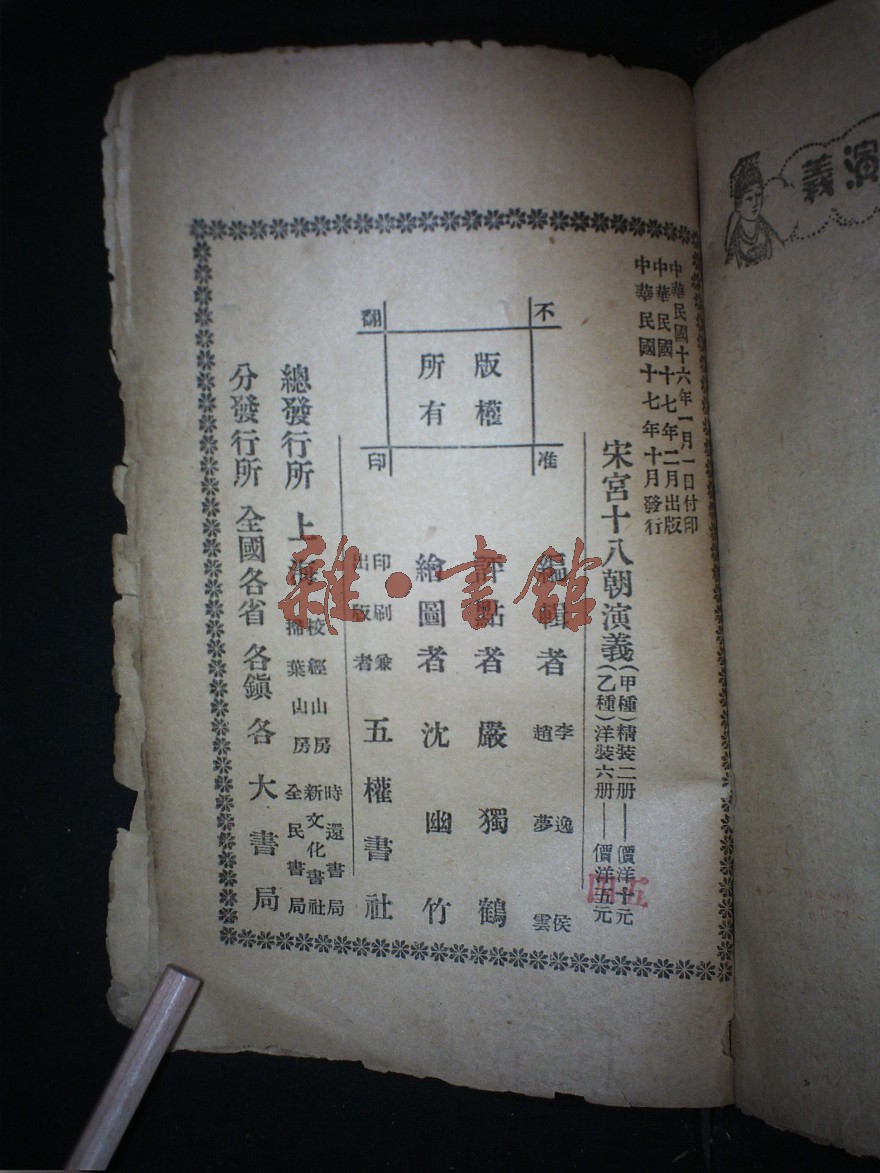 中華民國十六年一月一日付印
中華民國十七年二月出版
中華民國十七年十月發行
宋宮十八朝演義
(甲種)精裝二册——價洋十元
(乙種)洋裝六册——價洋五元
五四
不准翻印
版權所有
編輯者 李逸侯 趙夢雲
評點者 嚴獨鶴
繪圖者 沈幽竹
印刷兼出版者 五權書社
總發行所 上海
校經山房 時還書局
新文化書社
掃葉山房 全民書局
分發行所 全國各省各鎮各大書局
雜·書館
演義